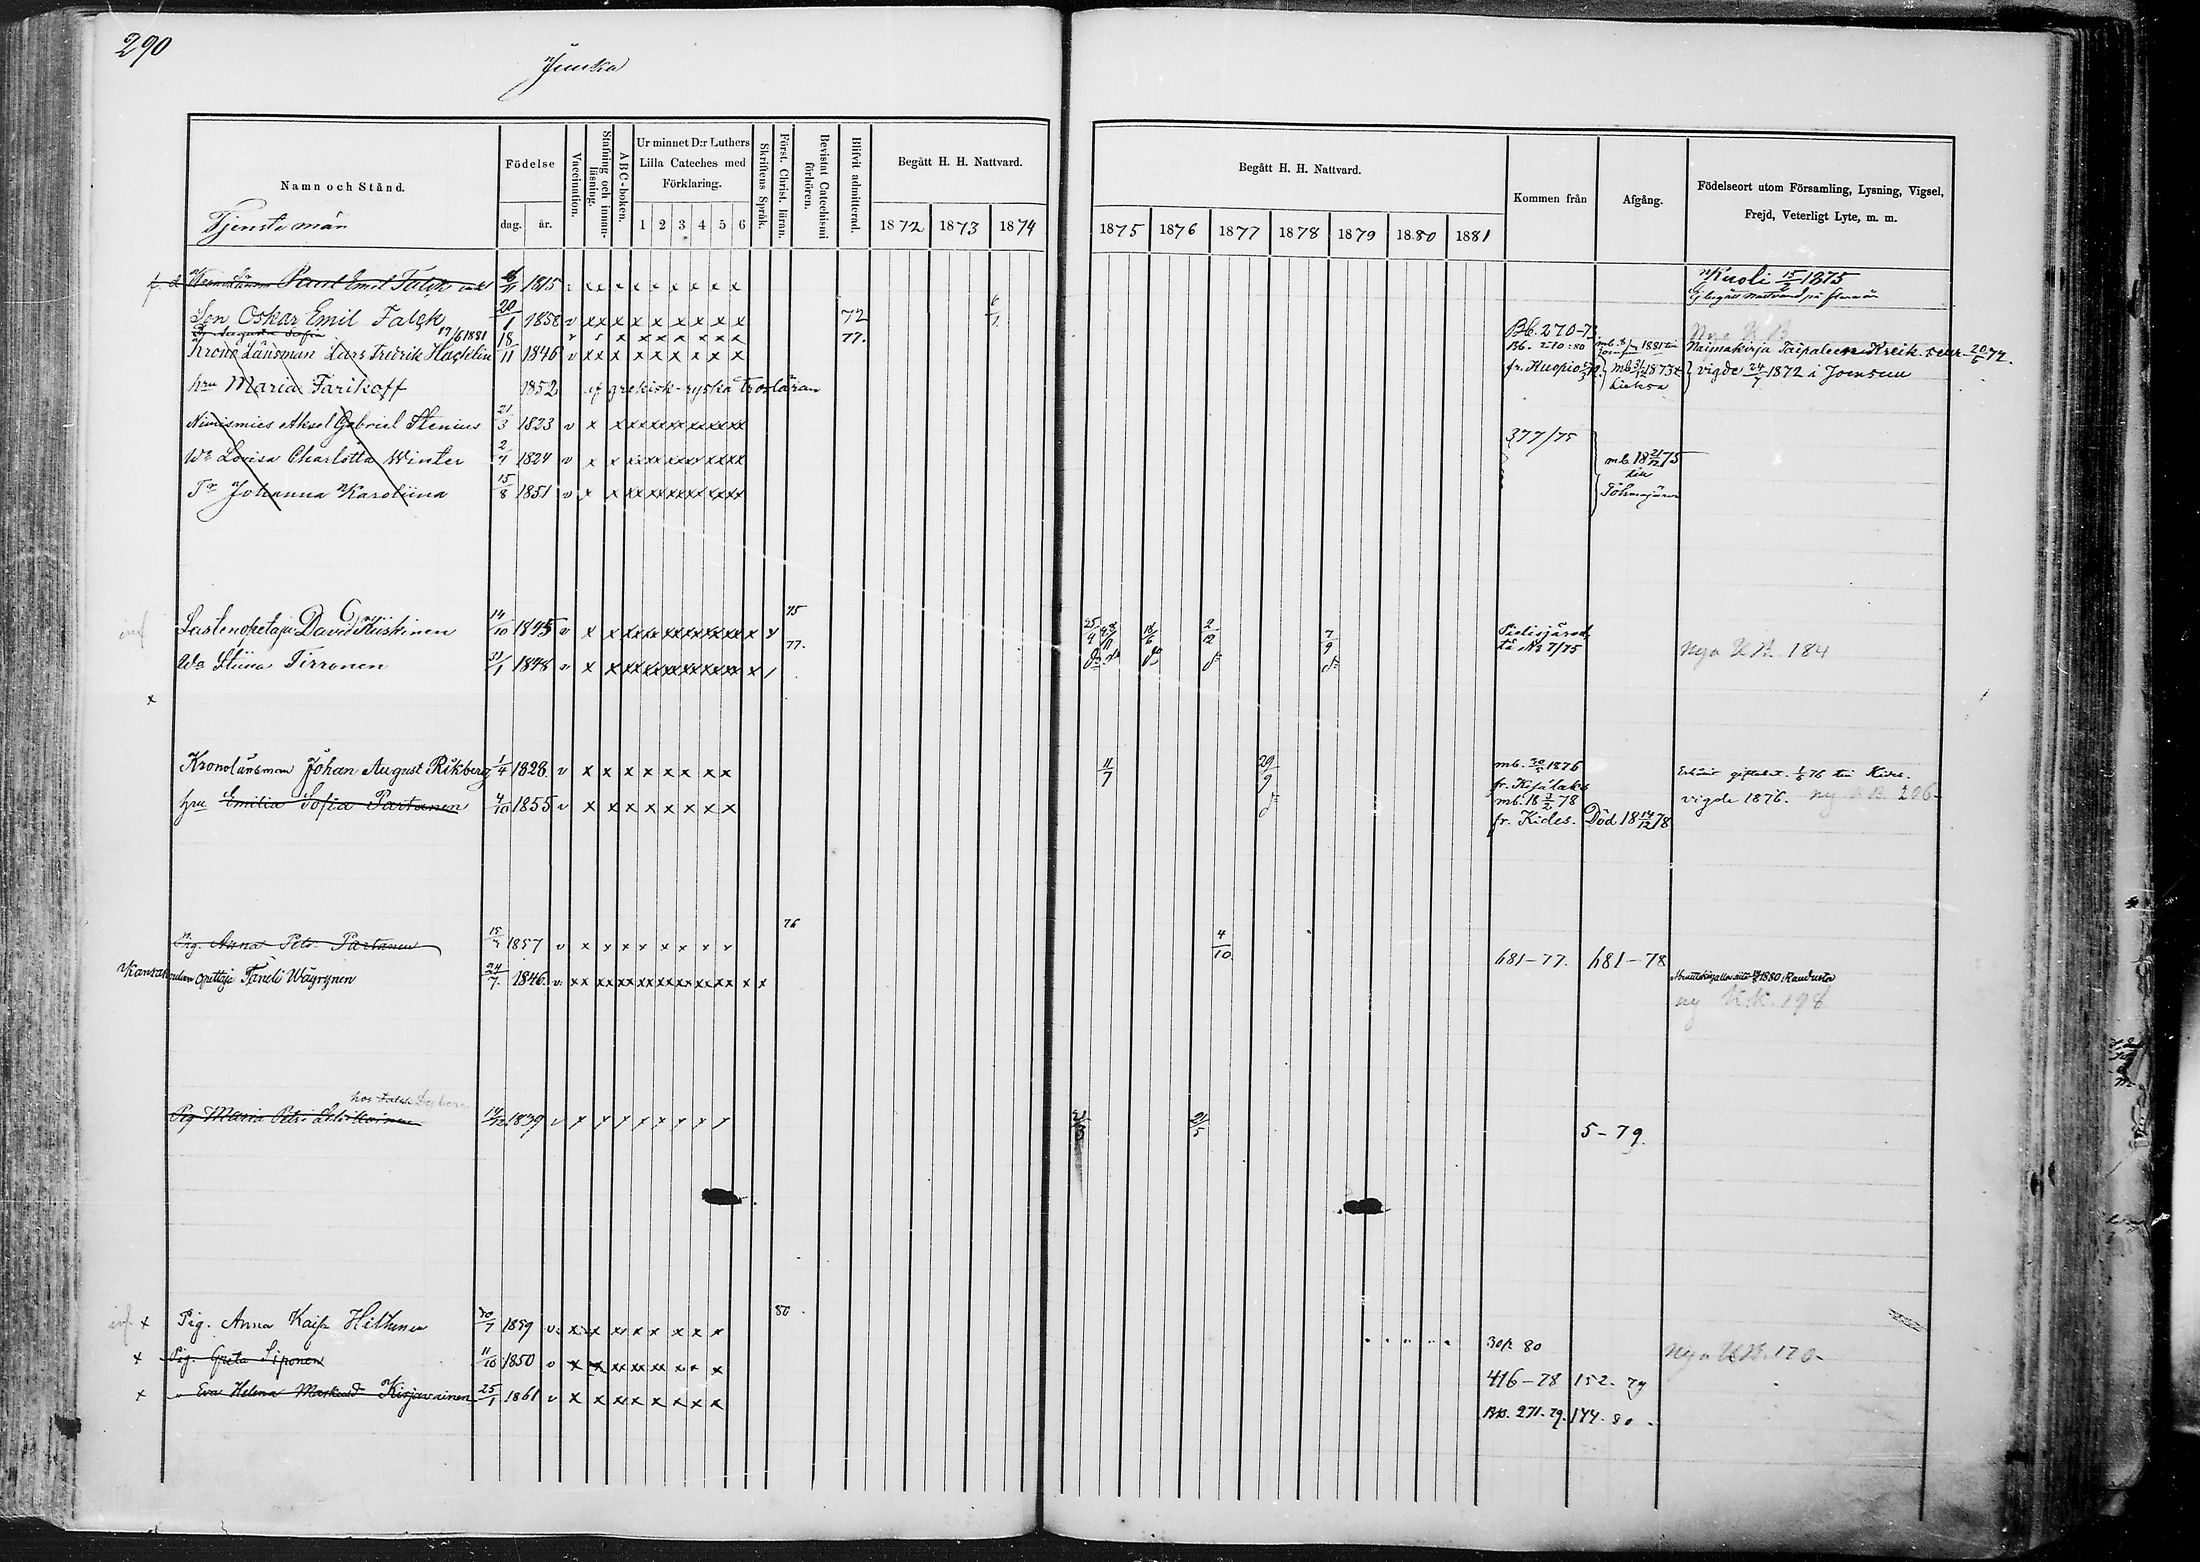 290
Juuka
Namn och Stånd.
Tjenste män
Födelse
dag. år.
Vaccination.
Stafning och innanläsning.
ABC-boken.
Ur minnet D:r Luthers Lilla Cateches med Förklaring.
1 2 3 4 5 6
Skriftens Språk.
Först. Christ. läran.
Bevistat Catechismi förhören.
Blifvit admitterad.
Begått H. H. Nattvard.
1872 1873 1874
Begått H. H. Nattvard.
1875 1876 1877 1878 1879 1880 1881
Kommen från
Afgång.
Födelseort utom Församling, Lysning, Vigsel,
Frejd, Veterligt Lyte, m. m.
Paul Emil Falck 1815 Kuoli 15/2 1875
Son Oskar Emil Falck 20/1 1858 v 72 6/1 Bb. 270-73
Augusta Sofia 17/6 1881 18 77. Bb. 270-80
Krono Länsman Lars Fredrik Hacklin 11 1846 v fr. Kuopio Naimakirja Taipaleen Kreik. seur. 20/6 72
hru Maria Farikoff 1852 af grekisk-ryska trosläran vigde 24/7 1872 i Joensuu
Nimismies Aksel Gabriel Stenius 21/3 1823 v 377/75
Wo Lovisa Charlotta Winter 2/4 1824 v mb 18 21/12 75
till
Tr Johanna Karoliina 15/8 1851 v Tohmajärvi
Lastenopettaja David C Kiiskinen 14/10 1845 v 75 18/6 2/12 7/9 Pielisjärveltä No 7/75
Wo Stiina Tirronen 31/1 1848 v 77. Nya KB. 184
Kronolänsman Johan August Rikberg 1/4 1828 v 11/7 29/9 mb. 30/5 1876
fr.
hru Emilia Sofia Partanen 4/10 1855 v mb. 18 3/2 78 vigde 1876. ny K.B. 206
fr. Kides. Död 18 14/12 78
Pig. Anna Petr. Partanen 15 1857 v 76 4/10 681-77. 681-78
Kansakoulun opettaja Taneli Wäyrynen 24/7. 1846. v. 1880 Raudusta
ny K.K. 198
hos
Pig Maria Petr. 14/12 1839 v 21/5 5-79.
Pig. Anna Kaisa Hiltunen 30/7 1859 v. 80 80
Nya KB. 170
Pig. Greta Siponen 11/10 1850 v 416-78 152-79
Eva Helena Kirjavainen 25/1 1861 v Bb. 271-79. 144-80